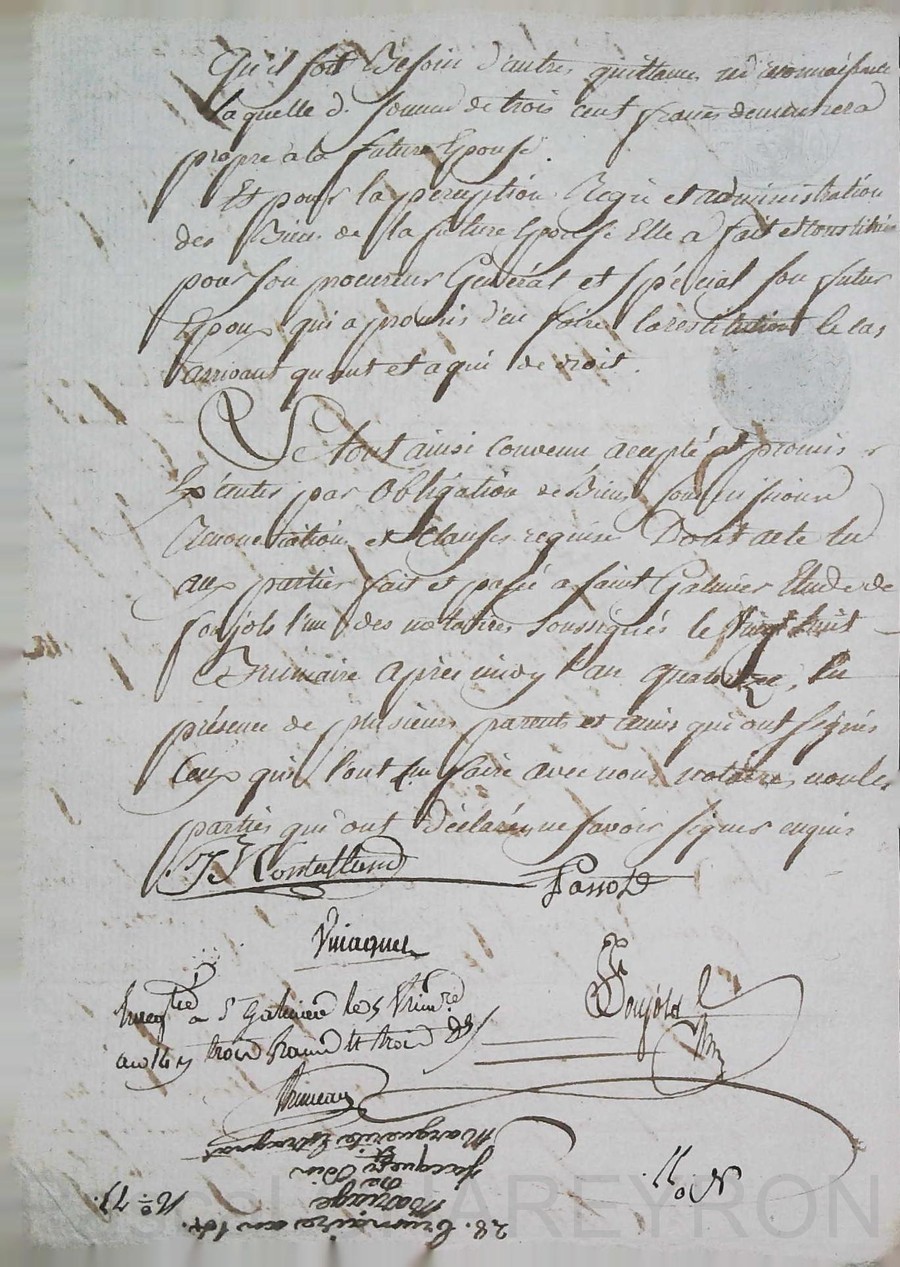 Qu'il soit Besoin d'autres quittances ni reconnoissance
laquelle d. somme de trois cent francs demeurera
propre à la future Epouse.
Et pour la perception Regie et administration
des Biens de la future Epouse Elle a fait et constitué
pour son procureur Général et spécial son futur
Epoux qui a promis d'en faire la restitution le cas
arrivant quant et a qui de droit.
Le tout ainsi convenu accepté et promis
Exécuter par Obligation de Biens soumissions
Renonciation et Clauses requises Dont acte lu
aux parties fait et passé a Saint Galmier Etude de
Soujols l'un des notaires soussignés le vingt huit
Brumaire apres midy l'an quatorze, En
présence de plusieurs parents et amis qui ont signés
Ceux qui l'ont su faire avec nous notaires, non les
parties qui ont déclarés ne savoir signer enquis
Passot
Soujols
Enregtré a St Galmier le 5 frimre
an 14 trois francs trois
28. brumaire an 14.
Mariage
de
Jacques
et
Marguerite
No 77.
No 77.
AREYRON